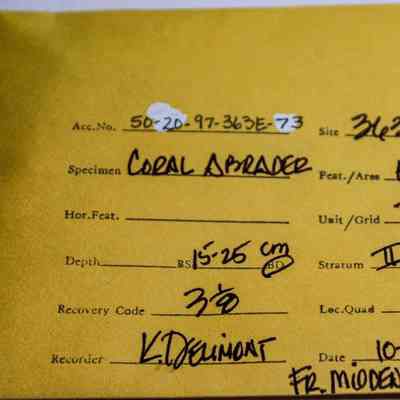 Acc.No. 50-20-97-363E-73 Site 363
Specimen CORAL ABRADER Feat./Area
Hor.Feat. Unit/Grid
Depth BS 15-25 cm BD Stratum II
Recovery Code Loc.Quad
Recorder K. DELIMONT Date 10-
FR. MIDDEN